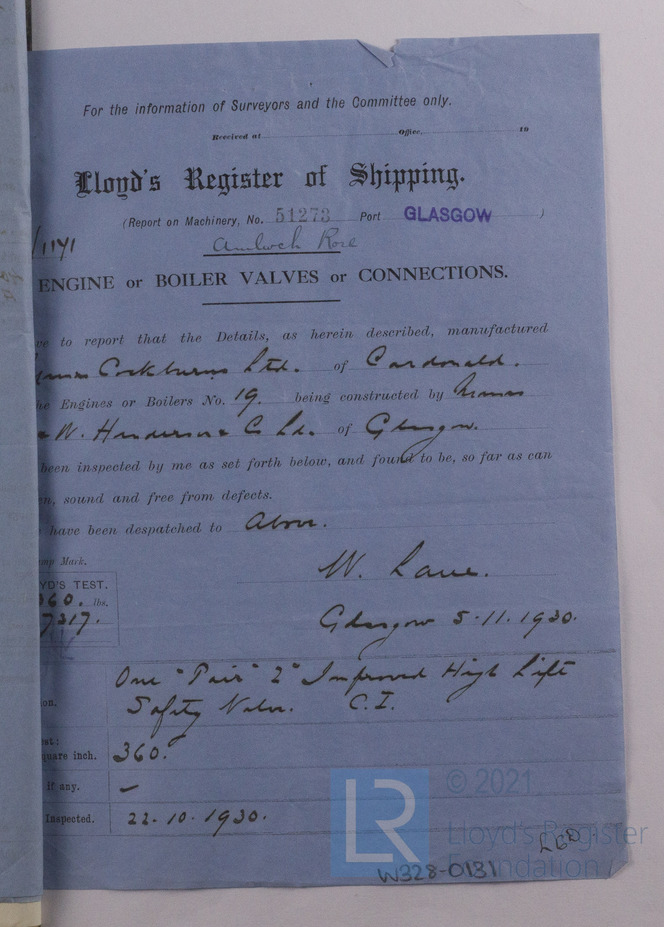 For the information of Surveyors and the Committee only.
Received at Office, 19
Lloyd's Register of Shipping.
(Report on Machinery, No. 51273 Port GLASGOW )
/1171
Amlwch Rose
ENGINE or BOILER VALVES or CONNECTIONS.
ve to report that the Details, as herein described, manufactured
Cockburns Ltd. of Cardonald.
he Engines or Boilers No. 19. being constructed by Messrs
W. Henderson & Co Ld. of Glasgow.
been inspected by me as set forth below, and found to be, so far as can
n, sound and free from defects.
have been despatched to Above.
mp Mark.
YD'S TEST.
360. lbs.
7317.
W. Lane.
Glasgow 5·11·1930.
One "Pair" 2" Improved High Lift
on.
Safety Valve. C.I.
est:
quare inch. 360.
if any. —
Inspected. 22-10-1930.
LR
© 2021
Lloyd's Register
Foundation
W328-0131